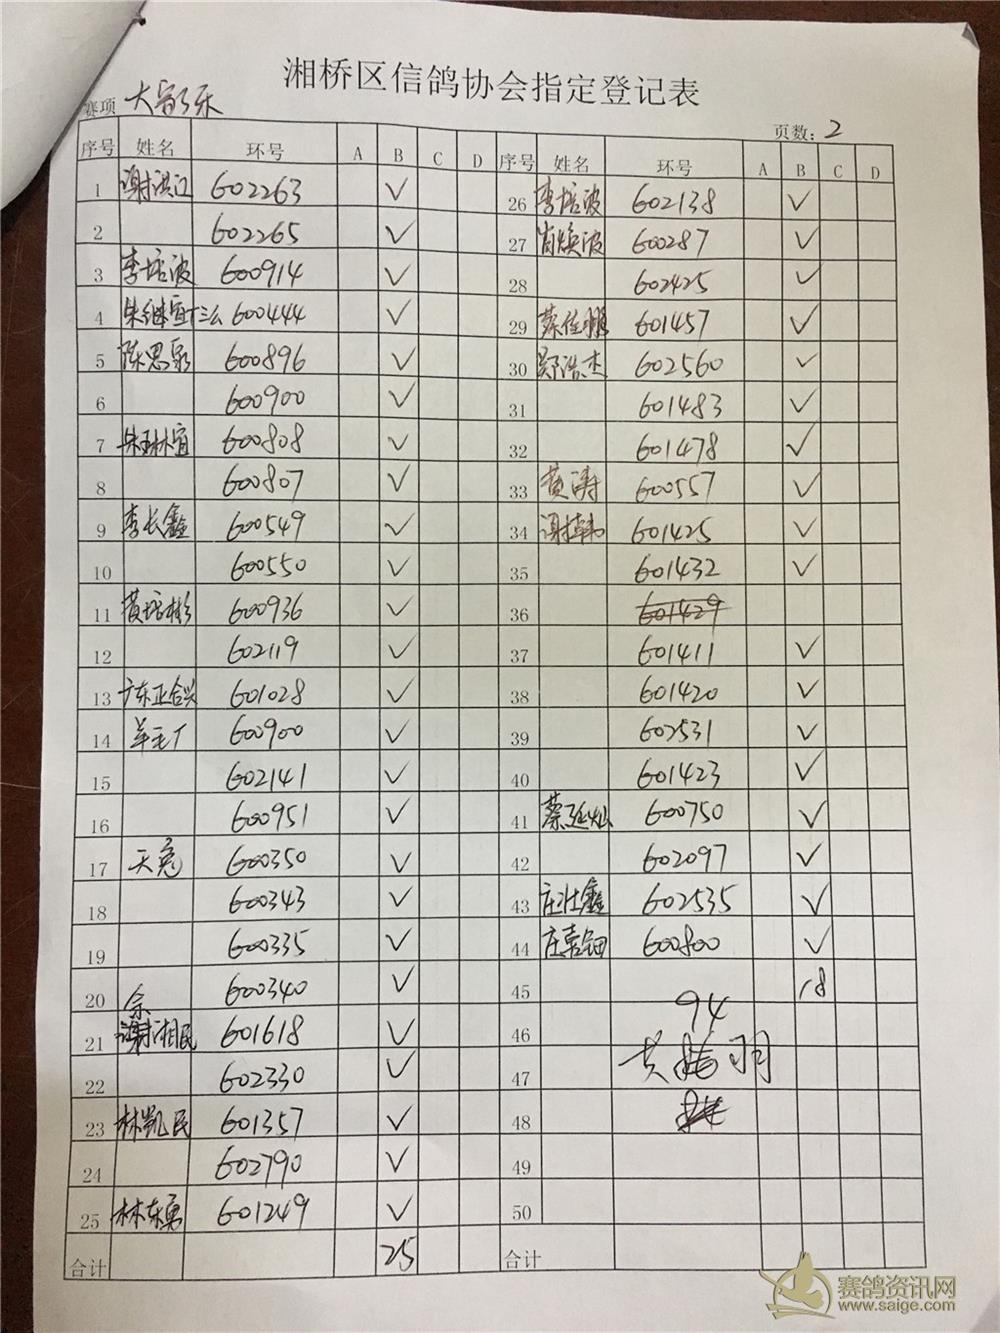 湘桥区信鸽协会指定登记表
赛项 大家乐
页数：2
序号 姓名 环号 A B C D 序号 姓名 环号 A B C D
1 谢洪江 602263 ✓ 26 李培波 602138 ✓
2 602265 ✓ 27 肖焕波 600287 ✓
3 李培波 600914 ✓ 28 602425 ✓
4 朱继宣 600444 ✓ 29 蔡佳鹏 601457 ✓
5 陈思泉 600896 ✓ 30 郑浩杰 602560 ✓
6 600900 ✓ 31 601483 ✓
7 朱琳宜 600808 ✓ 32 601478 ✓
8 600807 ✓ 33 黄涛 600557 ✓
9 李长鑫 600549 ✓ 34 谢韩 601425 ✓
10 600550 ✓ 35 601432 ✓
11 黄培彬 600936 ✓ 36 601429
12 602119 ✓ 37 601411 ✓
13 广东正合兴 601028 ✓ 38 601420 ✓
14 羊毛厂 600900 ✓ 39 602531 ✓
15 602141 ✓ 40 601423 ✓
16 600951 ✓ 41 蔡延灿 600750 ✓
17 天宠 600350 ✓ 42 602097 ✓
18 600343 ✓ 43 庄壮鑫 602535 ✓
19 600335 ✓ 44 庄喜钿 600800 ✓
20 600340 ✓ 45 18
21 余湘民 601618 ✓ 46 94
22 602330 ✓ 47
23 林凯民 601357 ✓ 48
24 602790 ✓ 49
25 林东勇 601249 ✓ 50
合计 25 合计
赛鸽资讯网
www.saige.com